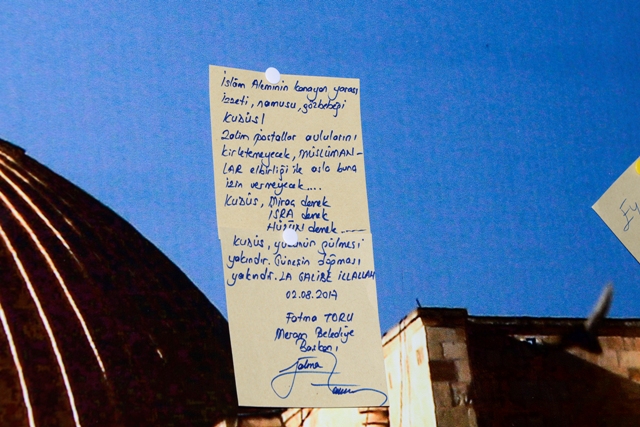 İslâm Aleminin kanayan yarası
izzeti, namusu, gözbebeği
KUDÜS!
Zalim postallar avlularını
kirletemeyecek, MÜSLÜMAN-
LAR elbirliği ile asla buna
izin vermeyecek....
KUDÜS, Miraç demek
İSRA demek
HÜZÜN demek......
KUDÜS, yüzünün gülmesi
yakındır. Güneşin doğması
yakındır. LA GALİBE İLLALLAH
02.08.2017
Fatma TORU
Meram Belediye
Başkanı
Fatma
Ey